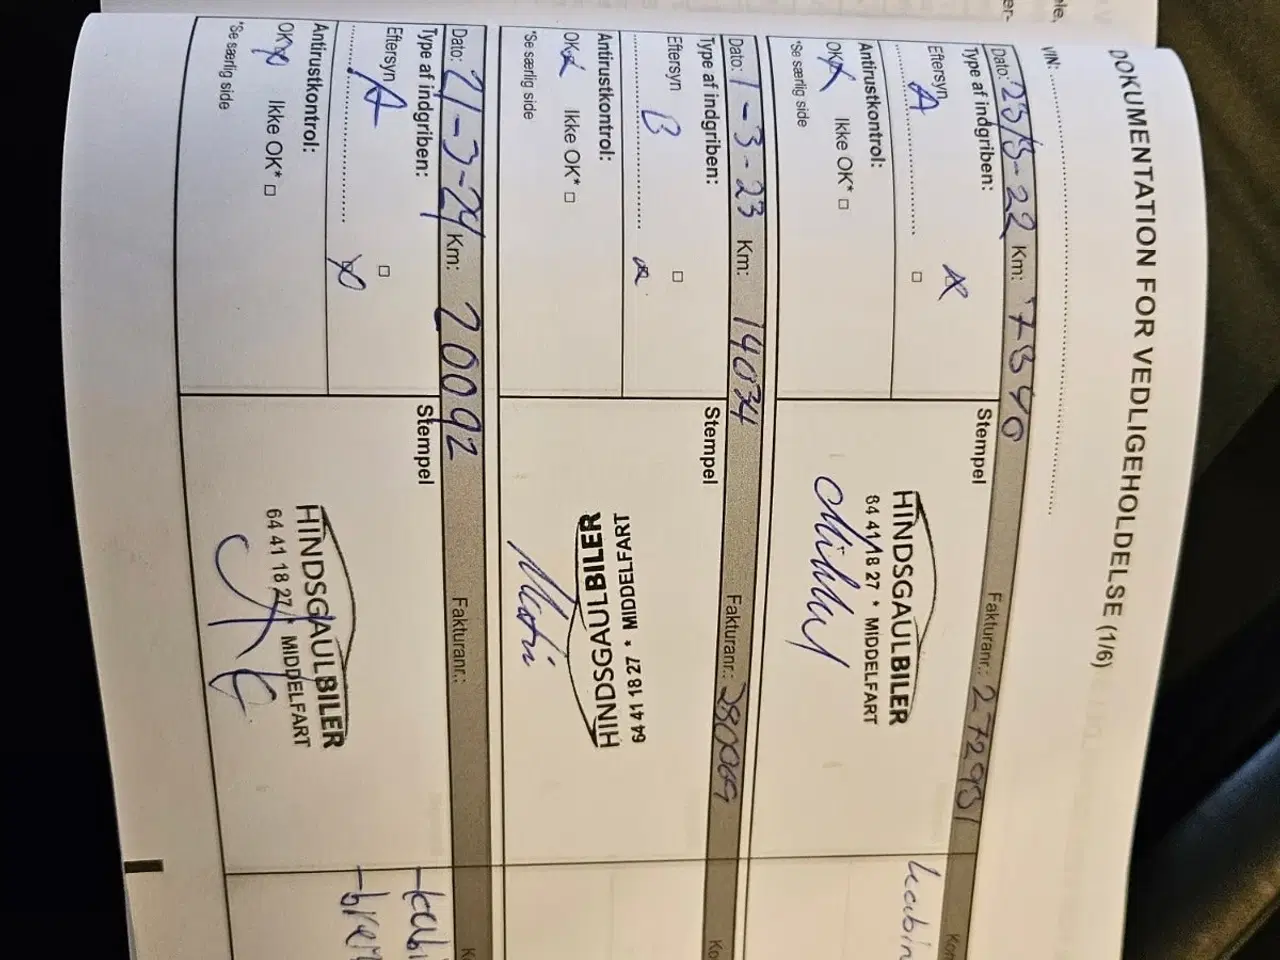 DOKUMENTATION FOR VEDLIGEHOLDELSE (1/6)
VIN:
Dato: 23/3-22 Km: 7340 Fakturanr.: 272931
Type af indgriben:
Eftersyn
A
Antirustkontrol:
OK Ikke OK*
*Se særlig side
Stempel
HINDSGAULBILER
64 41 18 27 * MIDDELFART
kabin
Dato: 1-3-23 Km: 14034 Fakturanr.: 280069
Type af indgriben:
Eftersyn
B
Antirustkontrol:
OK Ikke OK*
*Se særlig side
Stempel
64 41 18 27 * MIDDELFART
HINDSGAULBILER
Dato: 21-3-24 Km: 20092 Fakturanr.:
Type af indgriben:
Eftersyn
A
Antirustkontrol:
OK Ikke OK*
*Se særlig side
Stempel
HINDSGAULBILER
64 41 18 27 * MIDDELFART
-kabi
-brem